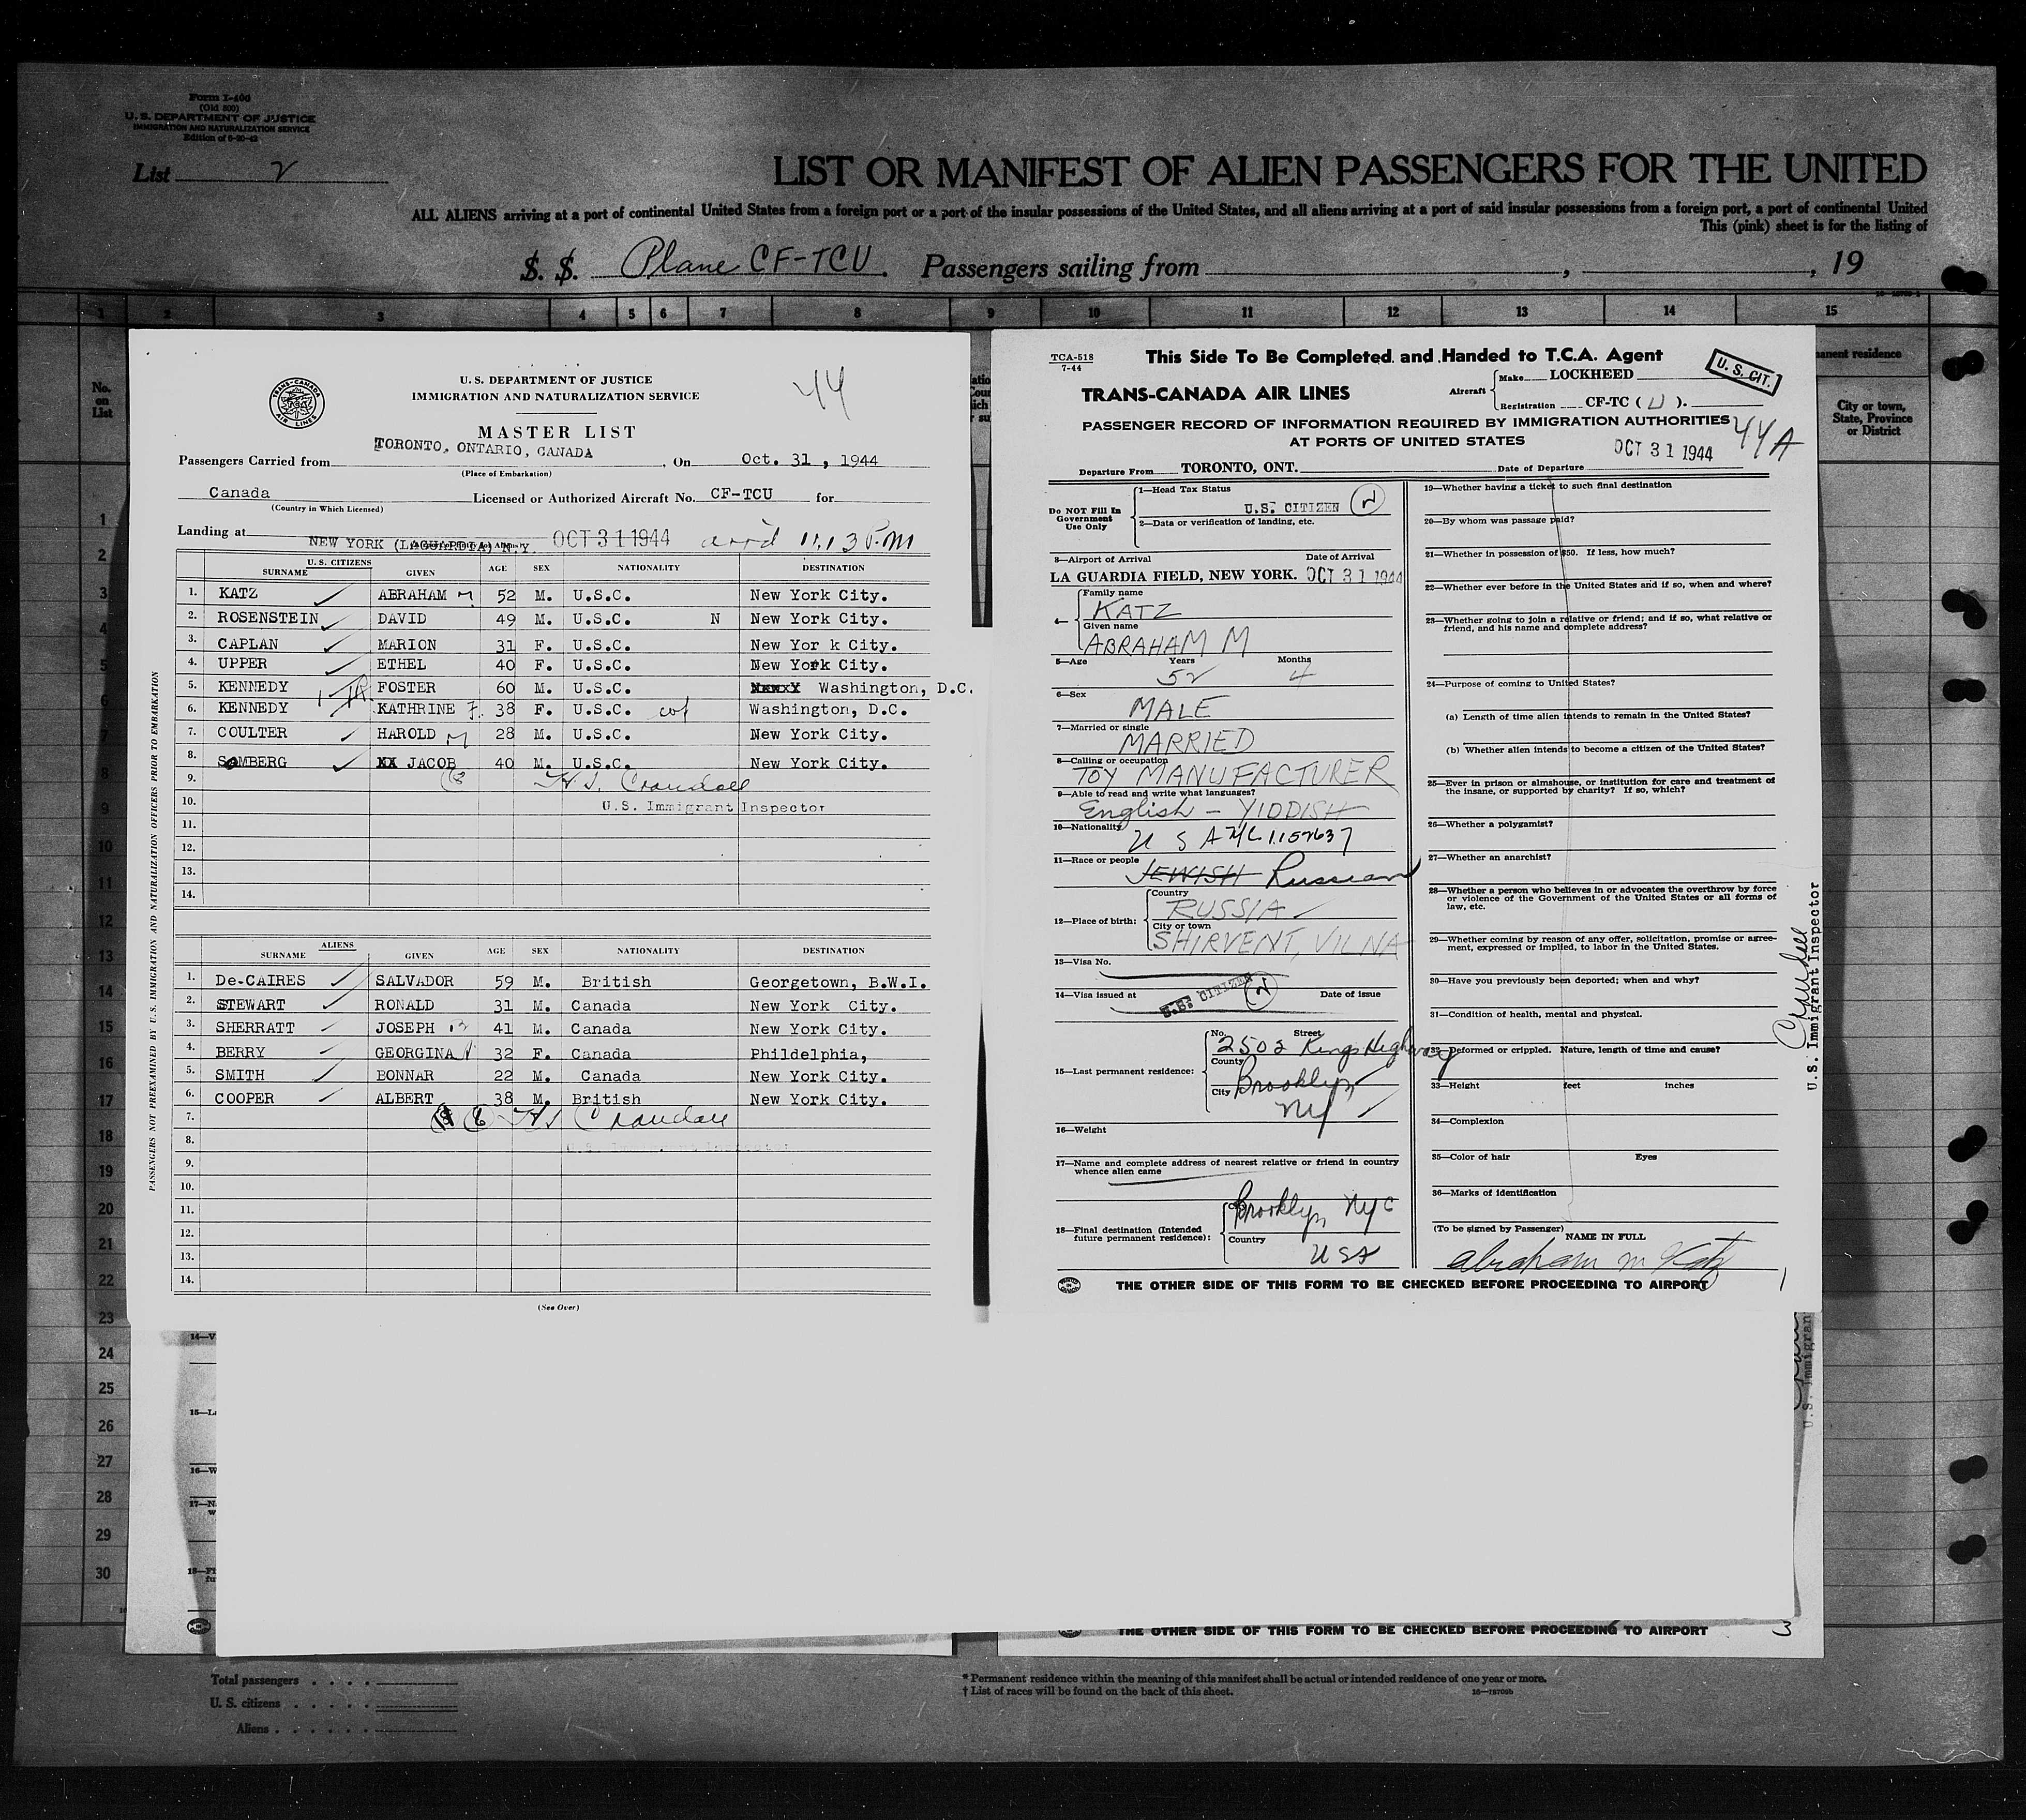 Form I-400
(Old 500)
U. S. DEPARTMENT OF JUSTICE
IMMIGRATION AND NATURALIZATION SERVICE
Edition of 6-20-42
List 2
LIST OR MANIFEST OF ALIEN PASSENGERS FOR THE UNITED
ALL ALIENS arriving at a port of continental United States from a foreign port or a port of the insular possessions of the United States, and all aliens arriving at a port of said insular possessions from a foreign port, a port of continental United
This (pink) sheet is for the listing of
S. S. Plane CF-TCU. Passengers sailing from , , 19
1 2 3 4 5 6 7 8 9 10 11 12 13 14 15
No. on List
City or town, State, Province or District
TRANS-CANADA AIR LINES
U. S. DEPARTMENT OF JUSTICE
IMMIGRATION AND NATURALIZATION SERVICE
44
MASTER LIST
Passengers Carried from TORONTO, ONTARIO, CANADA, On Oct. 31, 1944
(Place of Embarkation)
Canada Licensed or Authorized Aircraft No. CF-TCU for
(Country in Which Licensed)
Landing at NEW YORK (LAGUARDIA) N.Y. OCT 31 1944
U. S. CITIZENS
SURNAME GIVEN AGE SEX NATIONALITY DESTINATION
1. KATZ ABRAHAM M 52 M. U.S.C. New York City.
2. ROSENSTEIN DAVID 49 M. U.S.C. N New York City.
3. CAPLAN MARION 31 F. U.S.C. New Yor k City.
4. UPPER ETHEL 40 F. U.S.C. New York City.
5. KENNEDY FOSTER 60 M. U.S.C. Washington, D.C.
6. KENNEDY KATHRINE F. 38 F. U.S.C. Washington, D.C.
7. COULTER HAROLD M 28 M. U.S.C. New York City.
8. SOMBERG XX JACOB 40 M. U.S.C. New York City.
9. (8) H. S. Crandall
10. U.S. Immigrant Inspector
11.
12.
13.
14.
ALIENS
SURNAME GIVEN AGE SEX NATIONALITY DESTINATION
1. De-CAIRES SALVADOR 59 M. British Georgetown, B.W.I.
2. STEWART RONALD 31 M. Canada New York City.
3. SHERRATT JOSEPH 41 M. Canada New York City.
4. BERRY GEORGINA 32 F. Canada Phildelphia,
5. SMITH BONNAR 22 M. Canada New York City.
6. COOPER ALBERT 38 M. British New York City.
7. (6) H S Crandall
8.
9.
10.
11.
12.
13.
14.
(See Over)
PASSENGERS NOT PREEXAMINED BY U. S. IMMIGRATION AND NATURALIZATION OFFICERS PRIOR TO EMBARKATION
TCA-518
7-44
This Side To Be Completed and Handed to T.C.A. Agent
U. S. CIT.
TRANS-CANADA AIR LINES
Aircraft Make LOCKHEED
Registration CF-TC ( U ).
PASSENGER RECORD OF INFORMATION REQUIRED BY IMMIGRATION AUTHORITIES
AT PORTS OF UNITED STATES
44A
Departure From TORONTO, ONT. Date of Departure OCT 31 1944
Do NOT Fill In Government Use Only
1—Head Tax Status
U.S. CITIZEN (N)
2—Data or verification of landing, etc.
3—Airport of Arrival Date of Arrival
LA GUARDIA FIELD, NEW YORK. OCT 31 1944
4— Family name
KATZ
Given name
ABRAHAM M
5—Age Years Months
52 4
6—Sex
MALE
7—Married or single
MARRIED
8—Calling or occupation
TOY MANUFACTURER
9—Able to read and write what languages?
English — YIDDISH
10—Nationality
U S A
11—Race or people
JEWISH Russian
12—Place of birth: Country
RUSSIA
City or town
SHIRVENT, VILNA
13—Visa No.
14—Visa issued at Date of issue
U.S. CITIZEN (N)
15—Last permanent residence: No. Street
2502 Kings Highway
County
City Brooklyn
NY
16—Weight
17—Name and complete address of nearest relative or friend in country whence alien came
18—Final destination (Intended future permanent residence):
Brooklyn NYC
Country
USA
19—Whether having a ticket to such final destination
20—By whom was passage paid?
21—Whether in possession of $50. If less, how much?
22—Whether ever before in the United States and if so, when and where?
23—Whether going to join a relative or friend; and if so, what relative or friend, and his name and complete address?
24—Purpose of coming to United States?
(a) Length of time alien intends to remain in the United States?
(b) Whether alien intends to become a citizen of the United States?
25—Ever in prison or almshouse, or institution for care and treatment of the insane, or supported by charity? If so, which?
26—Whether a polygamist?
27—Whether an anarchist?
28—Whether a person who believes in or advocates the overthrow by force or violence of the Government of the United States or all forms of law, etc.
29—Whether coming by reason of any offer, solicitation, promise or agreement, expressed or implied, to labor in the United States.
30—Have you previously been deported; when and why?
31—Condition of health, mental and physical.
32—Deformed or crippled. Nature, length of time and cause?
33—Height feet inches
34—Complexion
35—Color of hair Eyes
36—Marks of identification
(To be signed by Passenger) NAME IN FULL
Abraham M Katz
THE OTHER SIDE OF THIS FORM TO BE CHECKED BEFORE PROCEEDING TO AIRPORT
Crandall
U.S. Immigrant Inspector
THE OTHER SIDE OF THIS FORM TO BE CHECKED BEFORE PROCEEDING TO AIRPORT
Total passengers
U. S. citizens
Aliens
* Permanent residence within the meaning of this manifest shall be actual or intended residence of one year or more.
† List of races will be found on the back of this sheet.